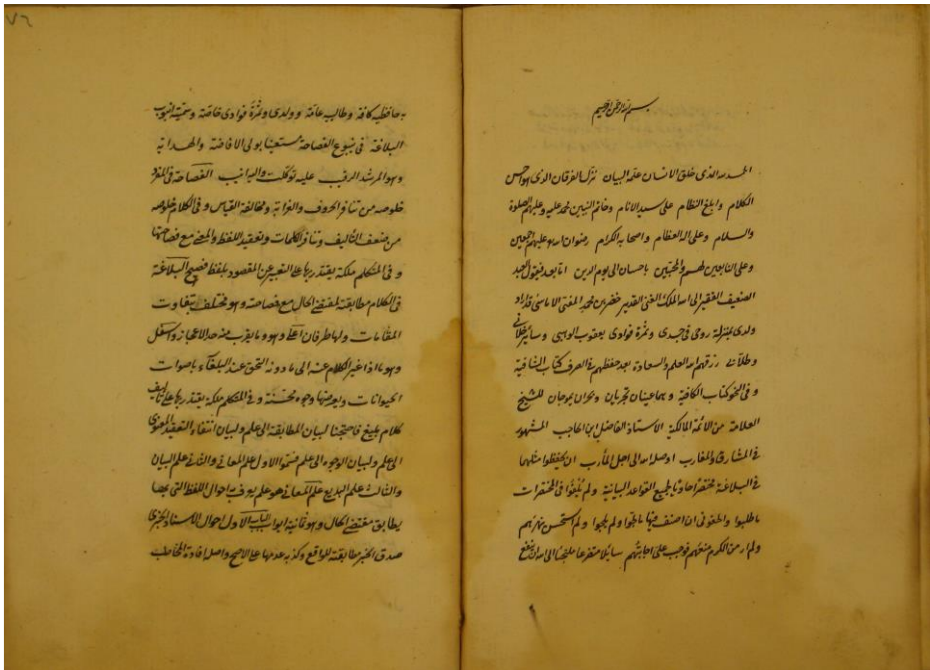 بسم الله الرحمن الرحيم
الحمد لله الذى خلق الانسان علمه البيان نزل الفرقان الذى هو احسن
الكلام وابلغ النظام على سيد الانام وخاتم النبيين محمد عليه وعليهم الصلوة
والسلام وعلى اله العظام واصحابه الكرام رضوان الله عليهم اجمعين
وعلى التابعين لهم والمحبين باحسان الى يوم الدين اما بعد فيقول العبد
الضعيف الفقير الى الله الملك الغنى القدير خضر بن محمد المفتى الاماسى قد اراد
ولدى بمنزلة روحى فى جسدى وثمرة فوادى يعقوب الوهبى وسائر خلانى
وطلابى رزقهم الله العلم والسعادة بعد حفظهم فى الصرف كتاب الشافية
وفى النحو كتاب الكافية وهما عينان تجريان وبحران يموجان للشيخ
العلامة من الائمة المالكية الاستاذ الفاضل ابن الحاجب المشهور
فى المشارق والمغارب اوصله الله الى اجل المأرب ان يحفظوا مثلهما
فى البلاغة مختصرا حاويا بجميع القواعد البيانية ولم يلفوا فى المختصرات
ما طلبوا والحوا فى ان اصنف فيها ولم استحسن نهرهم
ولم ار من الكرم منعهم فوجب على اجابتهم سايلا متضرعا ملتجئا الى الله ان ينفع
٧٦
به حافظيه كافة وطالبيه عامة وولدى وثمرة فوادى خاصة وسميته انبوب
البلاغة فى ينبوع الفصاحة مستعينا بولى الافاضة والهداية
وهو المرشد الرقيب عليه توكلت واليه انيب الفصاحة فى المفرد
خلوصه من تنافر الحروف والغرابة ومخالفة القياس وفى الكلام خلوصه
من ضعف التأليف وتنافر الكلمات وتعقيد اللفظ والمعنى مع فصاحتها
وفى المتكلم ملكة يقتدر بها على التعبير عن المقصود بلفظ فصيح البلاغة
فى الكلام مطابقته لمقتضى الحال مع فصاحته وهو مختلف بتفاوت
المقامات ولها طرفان اعلى وهو وما يقرب منه حد الاعجاز واسفل
وهو ما اذا غير الكلام عنه الى ما دونه التحق عند البلغاء باصوات
الحيوانات ويتبعها وجوه محسنة وفى المتكلم ملكة يقتدر بها على تاليف
كلام بليغ فاحتجنا لبيان المطابقة الى علم ولبيان انتفاء التعقيد المعنوى
الى علم ولبيان الوجوه الى علم فسموا الاول علم المعانى والثانى علم البيان
والثالث علم البديع علم المعانى هو علم يعرف به احوال اللفظ التى بها
يطابق مقتضى الحال وهو ثمانية ابواب الباب الاول احوال الاسناد الخبرى
صدق الخبر مطابقته للواقع وكذبه عدمها على الاصح واصله افادة المخاطب